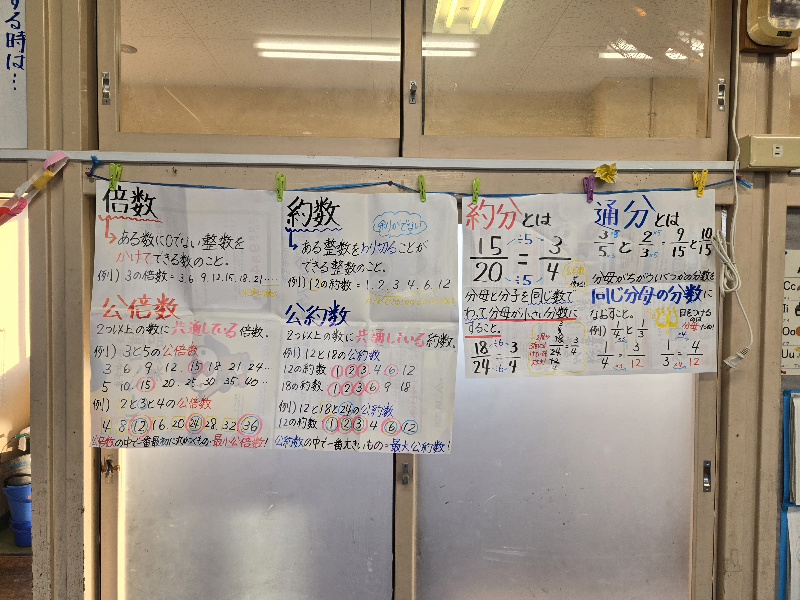 する時は…
倍数
ある数に0でない整数を
かけてできる数のこと。
例) 3の倍数=3.6.9.12.15.18.21…
公倍数
2つ以上の数に共通している倍数。
例) 3と5の公倍数
3 6 9 12 15 18 21 24…
5 10 15 20 25 30 35 40…
例) 2と3と4の公倍数
4 8 12 16 20 24 28 32 36
公倍数の中で一番最初に
最小公倍数!
約数
ある整数をわり切ることが
できる整数のこと。
例) 12の約数=1.2.3.4.6.12
公約数
2つ以上の数に共通している約数。
例) 12と18の公約数
12の約数 1 2 3 4 6 12
18の約数 1 2 3 6 9 18
例) 12と18と24の公約数
12の約数 1 2 3 4 6 12
公約数の中で一番大きいもの=最大公約数!
約分とは
15/20 = 3/4
÷5
÷5
分母と分子を同じ数で
わって分母が小さい分数に
すること。
18/24 = 3/4
÷6
÷6
通分とは
3/5と2/3=9/15と10/15
分母がちがういくつかの分数を
同じ分母の分数に
なおすこと。
例) 1/4と1/3
1/4 = 3/12 1/3 = 4/12
Cc